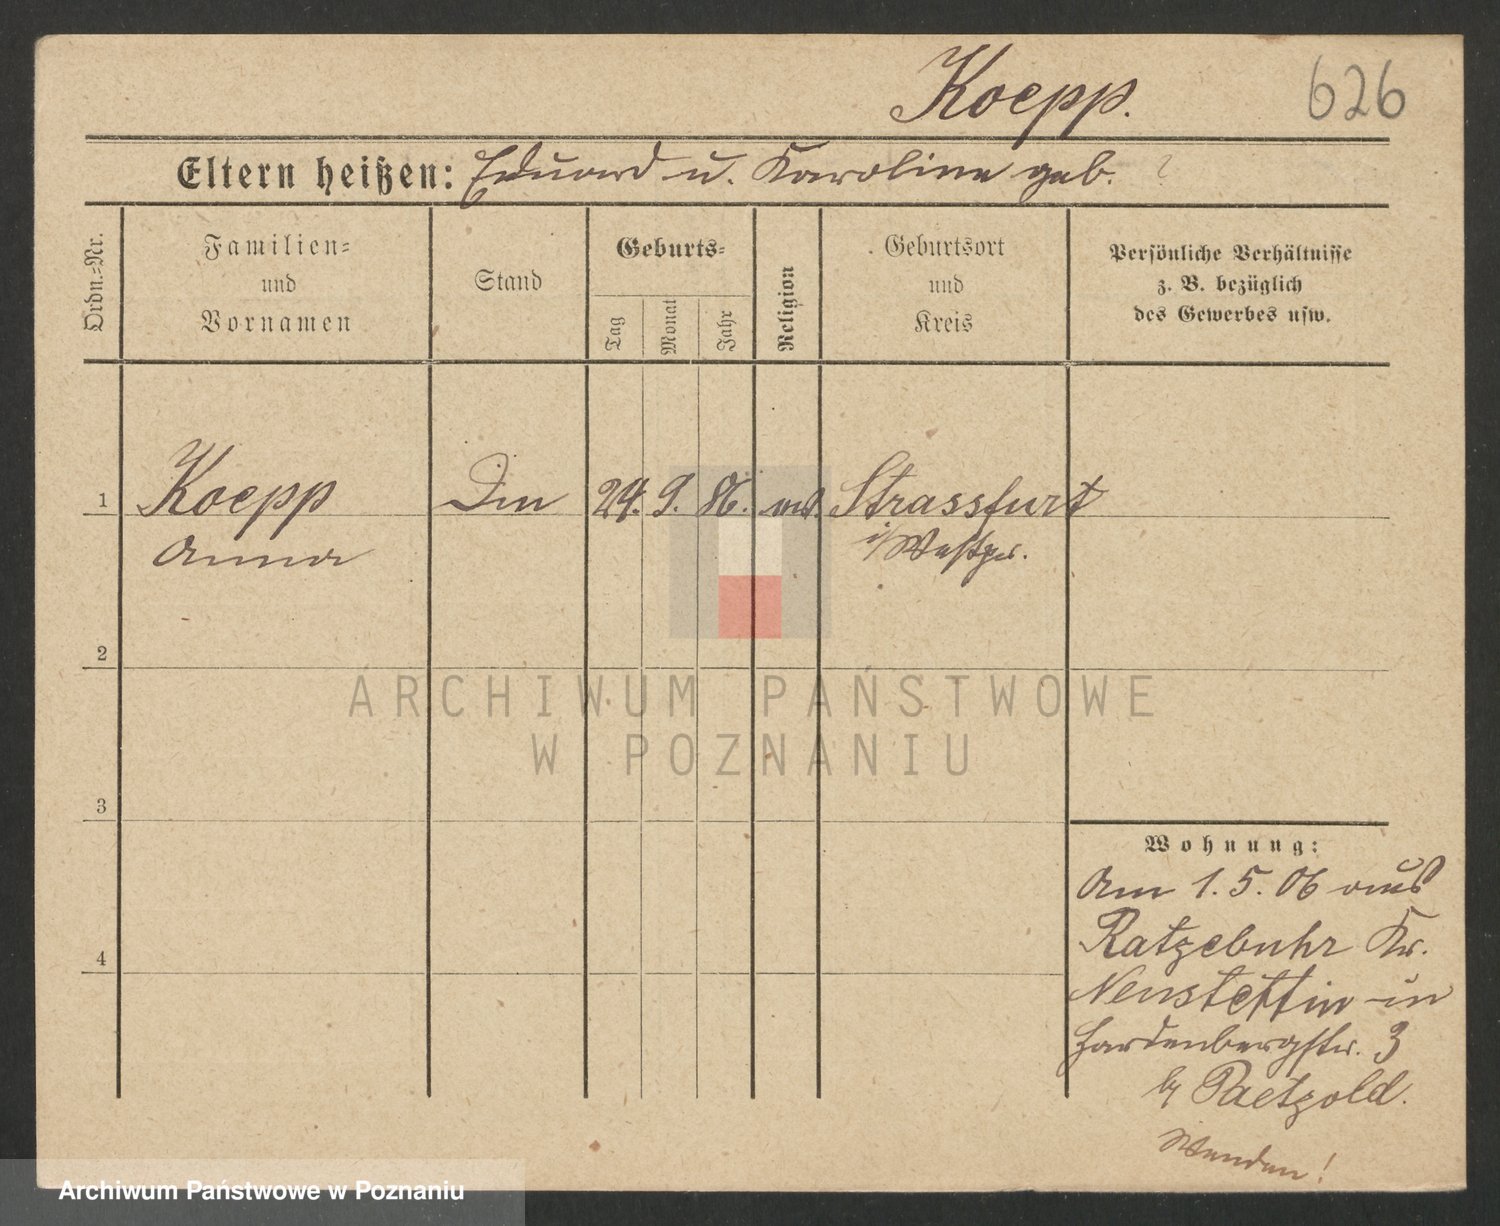 Koepp. 626
Eltern heißen: Eduard u. Karoline geb. ?
Ordn.=Nr.
Familien=
und
Vornamen
Stand
Geburts=
Tag
Monat
Jahr
Religion
Geburtsort
und
Kreis
Persönliche Verhältnisse
z. B. bezüglich
des Gewerbes usw.
1 Koepp 24. 9. 86. Strassfurt
Anna i/Westpr.
2
ARCHIWUM PAŃSTWOWE
W POZNANIU
3
Wohnung:
Am 1.5.06 aus
Ratzebuhr Kr.
4
Neustettin in
Hardenbergstr. 3
b/ Paetzold.
Wenden!
Archiwum Państwowe w Poznaniu